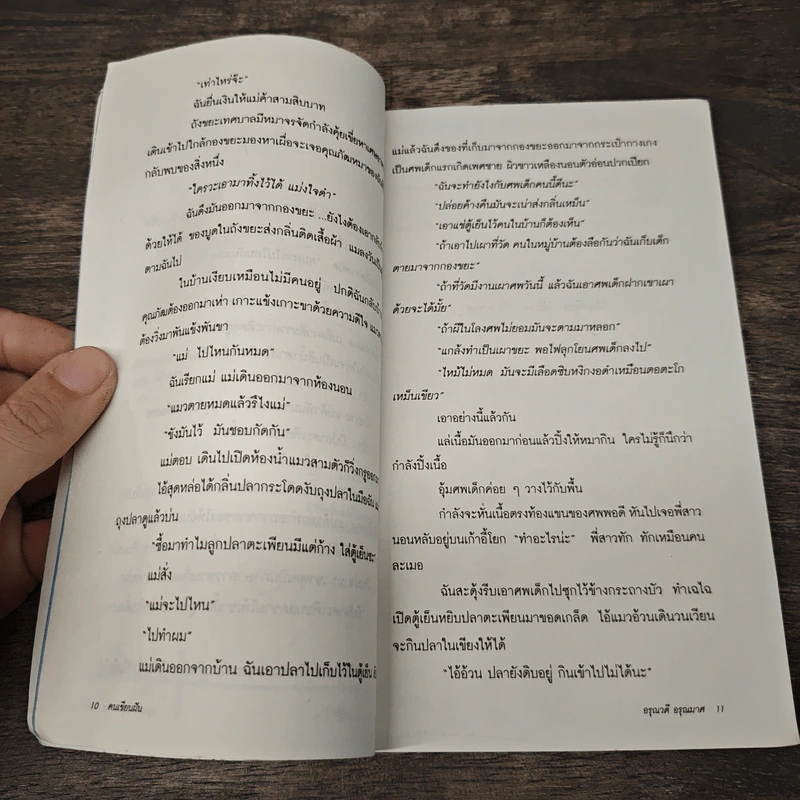 "เท่าไหร่จ๊ะ"
ฉันยื่นเงินให้แม่ค้าสามสิบบาท
ถังขยะเทศบาลมีหมาจรจัดกำลังคุ้ยเขี่ยหาเศษอาหาร
เดินเข้าไปใกล้กองขยะมองหาเผื่อจะเจอคุณภัฒหมาของฉัน
กลับพบของสิ่งหนึ่ง
"ใครวะเอามาทิ้งไว้ได้ แม่งใจดำ"
ฉันดึงมันออกมาจากกองขยะ ...ยังไงต้องเอากลับ
ด้วยให้ได้ ของบูดในถังขยะส่งกลิ่นติดเสื้อผ้า แมลงวันบิน
ตามฉันไป
ในบ้านเงียบเหมือนไม่มีคนอยู่ ปกติฉันกลับ
คุณภัฒต้องออกมาเห่า เกาะแข้งเกาะขาด้วยความดีใจ แมว
ต้องวิ่งมาพันแข้งพันขา
"แม่ ไปไหนกันหมด"
ฉันเรียกแม่ แม่เดินออกมาจากห้องนอน
"แมวตายหมดแล้วรึไงแม่"
"ขังมันไว้ มันชอบกัดกัน"
แม่ตอบ เดินไปเปิดห้องน้ำแมวสามตัวก็วิ่งกรูออก
ไอ้สุดหล่อได้กลิ่นปลากระโดดงับถุงปลาในมือฉัน
ถุงปลาดูแล้วบ่น
"ซื้อมาทำไมลูกปลาตะเพียนมีแต่ก้าง ใส่ตู้เย็นซะ"
แม่สั่ง
"แม่จะไปไหน"
"ไปทำผม"
แม่เดินออกจากบ้าน ฉันเอาปลาไปเก็บไว้ในตู้เย็น
10 คนเขียนฝัน
แม่แล้วฉันดึงของที่เก็บมาจากกองขยะออกมาจากกระเป๋ากางเกง
เป็นศพเด็กแรกเกิดเพศชาย ผิวขาวเหลืองนอนตัวอ่อนปวกเปียก
"ฉันจะทำยังไงกับศพเด็กคนนี้ดีนะ"
"ปล่อยค้างคืนมันจะเน่าส่งกลิ่นเหม็น"
"เอาแช่ตู้เย็นไว้คนในบ้านก็ต้องเห็น"
"ถ้าเอาไปเผาที่วัด คนในหมู่บ้านต้องลือกันว่าฉันเก็บเด็ก
ตายมาจากกองขยะ"
"ถ้าที่วัดมีงานเผาศพวันนี้ แล้วฉันเอาศพเด็กฝากเขาเผา
ด้วยจะได้มั้ย"
"ถ้าผีในโลงศพไม่ยอมมันจะตามมาหลอก"
"แกล้งทำเป็นเผาขยะ พอไฟลุกโยนศพเด็กลงไป"
"ไหม้ไม่หมด มันจะมีเลือดซิบหงิกงอดำเหมือนตอตะโก
เหม็นเขียว"
เอาอย่างนี้แล้วกัน
แล่เนื้อมันออกมาก่อนแล้วปิ้งให้หมากิน ใครไม่รู้ก็นึกว่า
กำลังปิ้งเนื้อ
อุ้มศพเด็กค่อย ๆ วางไว้กับพื้น
กำลังจะหั่นเนื้อตรงท้องแขนของศพพอดี หันไปเจอพี่สาว
นอนหลับอยู่บนเก้าอี้โยก "ทำอะไรน่ะ" พี่สาวทัก ทักเหมือนคน
ละเมอ
ฉันสะดุ้งรีบเอาศพเด็กไปซุกไว้ข้างกระถางบัว ทำเฉไฉ
เปิดตู้เย็นหยิบปลาตะเพียนมาขอดเกล็ด ไอ้แมวอ้วนเดินวนเวียน
จะกินปลาในเขียงให้ได้
"ไอ้อ้วน ปลายังดิบอยู่ กินเข้าไปไม่ได้นะ"
อรุณวดี อรุณมาศ 11